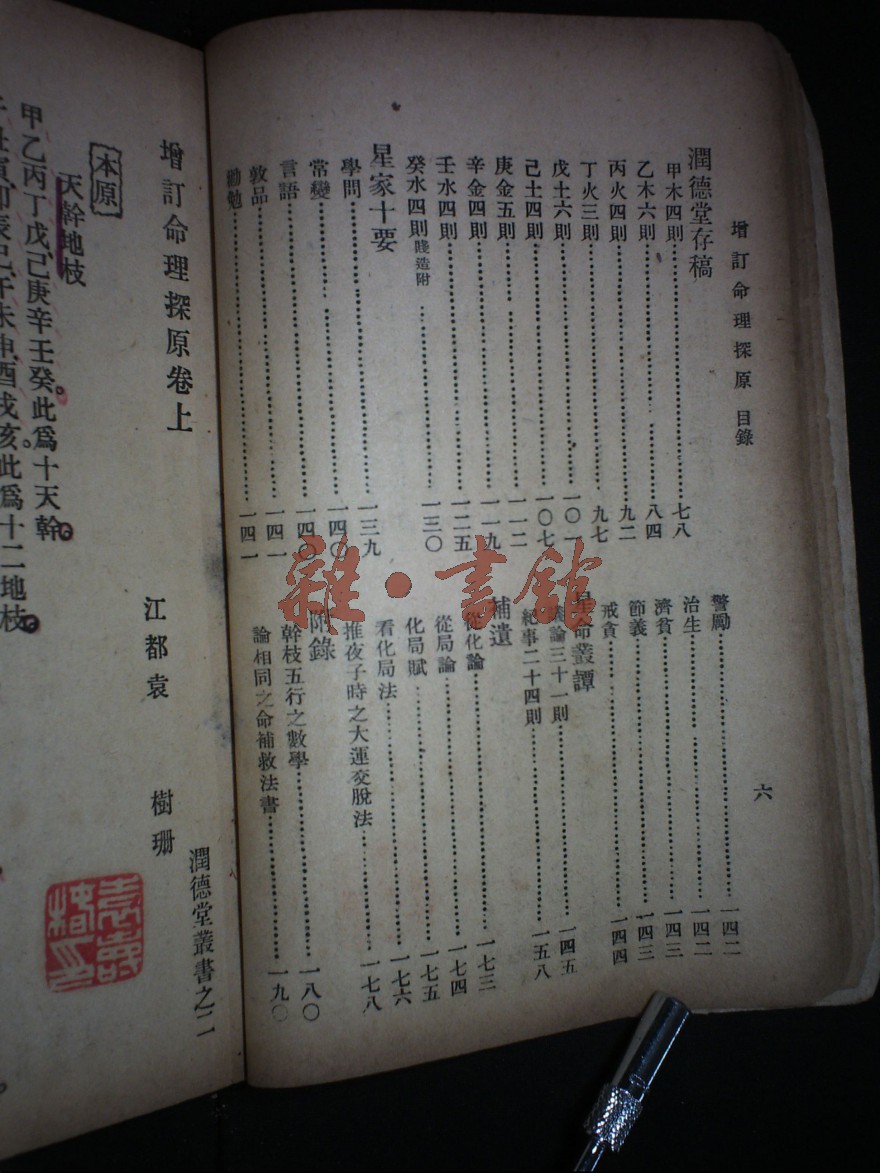 增訂命理探原 目錄
六
潤德堂存稿
甲木四則……七八
乙木六則……八四
丙火四則……九二
丁火三則……九七
戊土六則……一〇一
己土四則……一〇七
庚金五則……一一二
辛金四則……一一九
壬水四則……一二五
癸水四則賤造附……一三〇
星家十要
學問……一三九
常變……一四〇
言語……一四〇
敦品……一四一
勸勉……一四一
警勵……一四二
治生……一四二
濟貧……一四三
節義……一四三
戒貪……一四四
星命叢譚
議論三十一則……一四五
紀事二十四則……一五八
補遺
從化論……一七三
從局論……一七四
化局賦……一七五
看化局法……一七六
推夜子時之大運交脫法……一七八
附錄
幹枝五行之數學……一八〇
論相同之命補救法書……一九〇
潤德堂叢書之二
增訂命理探原卷上
江都袁 樹珊
本原
天幹地枝
甲乙丙丁戊己庚辛壬癸。此爲十天幹。
子丑寅卯辰巳午未申酉戌亥。此爲十二地枝。
雜·書館